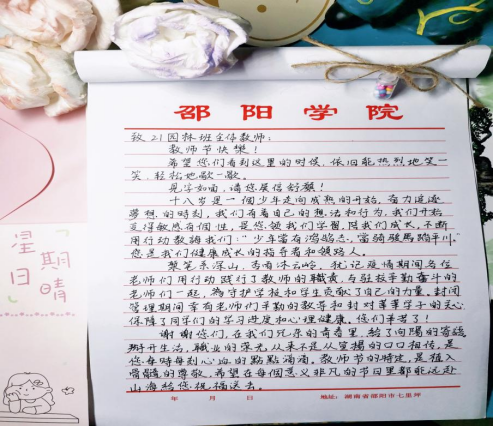 邵阳学院
致21园林班全体教师：
教师节快乐！
希望您们看到这里的时候，依旧能热烈地笑一
笑，轻松地歇一歇。
见字如面，请您展信舒颜！
十八岁是一个少年走向成熟的开始，奋力追逐
梦想的时刻，我们有着自己的想法和行为，我们开始
变得敏感有个性，是您领我们学习，陪我们成长，不断
用行动教诲我们：“少年当有鸿鹄志，当骑骏马踏平川”。
您是我们健康成长的指导者和领路人。
犹记疫情期间各位
老师们用行动践行了教师的职责，与驻校辛勤奋斗的
老师们一起，为守护学校和学生贡献了自己的力量。封闭
管理期间幸有老师们辛勤的教导和封对莘莘学子的关心
保障了同学们的学习热度和心理健康。您们辛苦了！
谢谢您们，在我们兄弟的青春里，给了向阳的
开生活，职业的深光从来不是从宣扬的口口相传，是
您每时每刻心血的点点滴滴。教师节的特定，是植入
骨髓的尊敬，希望在每个意义非凡的节日里都能远赴
山海给您祝福送去。
年 月 日 地址：湖南省邵阳市七里坪
星期日
晴